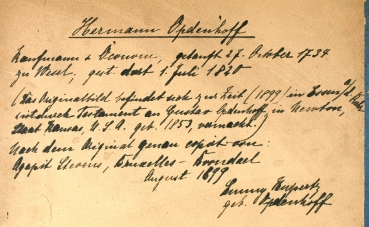 Hermann Opdenhoff
Kaufmann & Oeconom, getauft 27. October 1734
zu Wesel, gest. dort 1. Juli 1820
(Das Originalbild befindet sich zur Zeit (1899) in Essen a/d Ruhr
ist durch Testament an Gustav Opdenhoff, in Newton,
Staat Kansas, U.S.A. geb. 1853, vermacht.)
Nach dem Original genau copirt von:
Agapit Stevens, Bruxelles - Boondael
August 1899
Emmy Huperts
geb. Opdenhoff